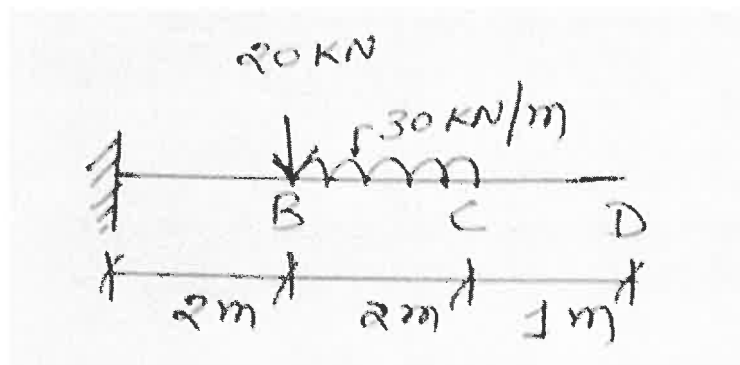 20 KN
30 KN/m
B C D
2m 2m 1m